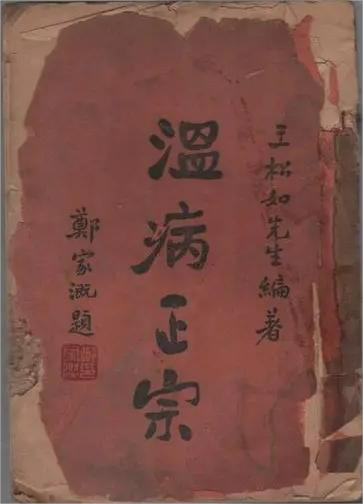 王松如先生編著
溫病正宗
鄭家溉題